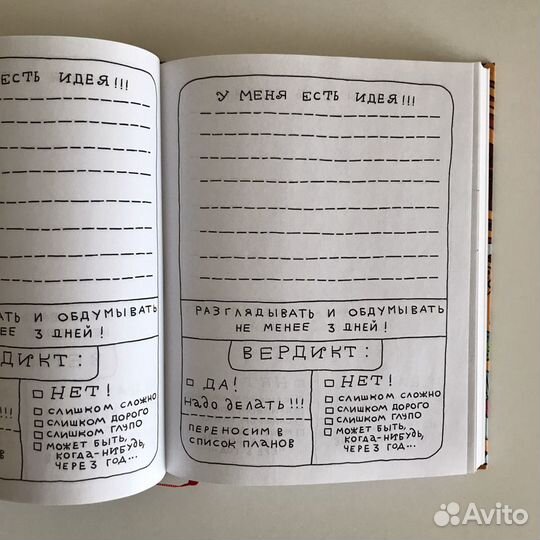 ЕСТЬ ИДЕЯ!!!
АТЬ И ОБДУМЫВАТЬ
ЕЕ 3 ДНЕЙ!
ДИКТ:
НЕТ!
СЛИШКОМ СЛОЖНО
СЛИШКОМ ДОРОГО
СЛИШКОМ ГЛУПО
МОЖЕТ БЫТЬ,
КОГДА-НИБУДЬ,
ЧЕРЕЗ ГОД...
!!!
В
ОВ
У МЕНЯ ЕСТЬ ИДЕЯ!!!
РАЗГЛЯДЫВАТЬ И ОБДУМЫВАТЬ
НЕ МЕНЕЕ 3 ДНЕЙ!
ВЕРДИКТ:
ДА!
НАДО ДЕЛАТЬ!!!
ПЕРЕНОСИМ В
СПИСОК ПЛАНОВ
НЕТ!
СЛИШКОМ СЛОЖНО
СЛИШКОМ ДОРОГО
СЛИШКОМ ГЛУПО
МОЖЕТ БЫТЬ,
КОГДА-НИБУДЬ,
ЧЕРЕ3 ГОД...
Avito